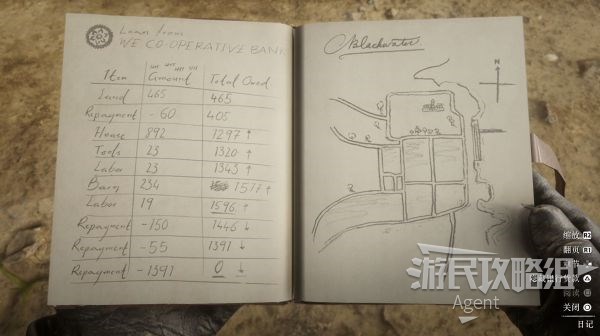 Loan from
WE CO-OPERATIVE BANK
Item Amount Total Owed
Land 465 465
Repayment -60 405
House 892 1297 ↑
Tools 23 1320 ↑
Labor 23 1343 ↑
Barn 234 1577 ↑
Labor 19 1596 ↑
Repayment -150 1446 ↓
Repayment -55 1391 ↓
Repayment -1391 0 ↓
Blackwater
N
游民攻略组
Agent
缩放 R2
翻页 R1
关闭
日记